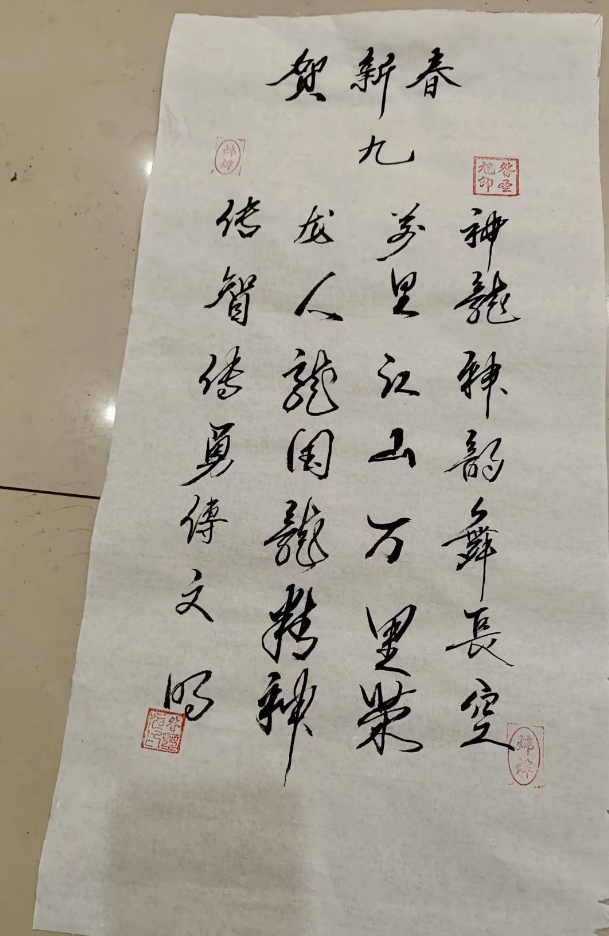 贺新春
九
神龍神韵舞長空
萬里江山万里荣
龙人龍国龍精神
传智傳勇傳文明